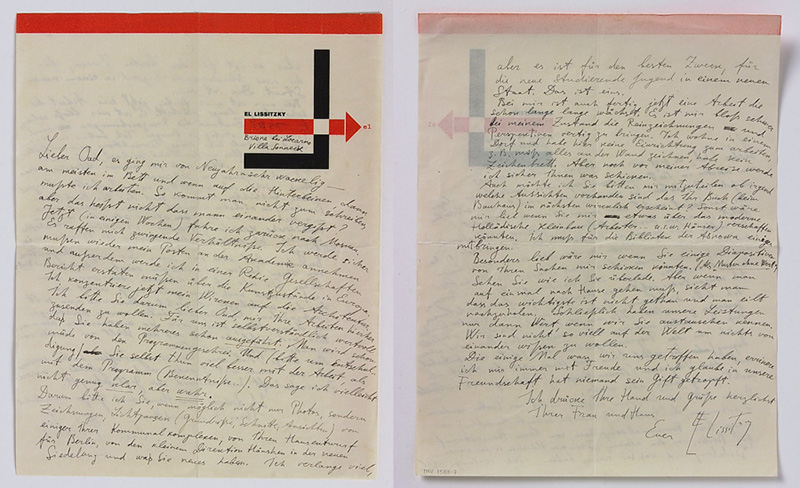 EL LISSITZKY
el
Brione bei Locarno
Villa Sonneck
Lieber Oud, es ging mir von Neujahr sehr wackelig—
am meisten in Bett und wenn auf die Hinterbeinen, dann
mußte ich arbeiten. So kommt man nicht zum schreiben
aber das heißt nicht dass man einander vergißt?
Jetzt (in einigen Wochen) fahre ich zurück nach Moskau.
Es raffen mich zwingende Verhältniße. Ich werde sicher
mußen wieder den Posten an der Academie annehmen
und außerdem werde ich in einer Reihe Gesellschaften
Bericht erstatten müßen über die Kunstzustände in Europa.
Ich konzentriere jetzt mein Können auf die Architektur.
Ich bitte Sie darum lieber Oud, mir Ihre Arbeiten
zusenden zu wollen. Für uns ist selbstverständlich wertvoll
daß Sie haben mehreres schon ausgeführt. Man wird schon
müde von den Programmen Und (bitte um entschul-
digung) Sie selbst thun viel besser mit der Arbeit, als
mit dem Programm (Bekentniße...). Das sage ich vielleicht
nicht genug klar, aber wahr.
Darum bitte ich Sie, wenn möglich nicht nur Photos, sondern
Zeichnungen, Lichtpausen (Grundriße, Schnitte, Ansichten) von
einigen Ihrer Kommunalkomplexen, von Ihrem Hausentwurf
für Berlin, von dem kleinen Direktion Häuschen in der neuen
Siedelung und was Sie neues haben. Ich verlange viel,
aber es ist für den besten Zweck, für
die neue Studierende Jugend in einem neuen
Staat. Das ist eins.
Bei mir ist auch fertig jetzt eine Arbeit die
schon lange lange wächst. Es ist mir bloß schwer
bei meinem Zustand die Reinzeichnungen und
Perspektiven fertig zu bringen. Ich wohne in einem
Dorf und habe hier keine Einrichtung zum arbeiten
z.B. muß alles an der Wand zeichnen, habe kein
Zeichenbrett. Aber noch vor meiner Abreise werde
ich sicher Ihnen was schicken.
Auch möchte ich Sie bitten mir mitzuteilen ob irgend
welche Aussichten vorhanden sind das Ihr Buch (bein
Bauhaus) im nächsten wirklich erscheint? Sonst wäre
mir lieb wenn Sie mir etwas über das moderne
Holländische Kleinbau (Arbeiter- u.s.w. Häuser) verschaffen
könnten. Ich muß für die Bibliothek der Asnowa einiges
mitbringen.
Besonders lieb wäre mir wenn Sie einige Diapositive
von Ihren Sachen mir schicken könnten.
Sehen Sie wie ich Sie überlade. Aber wenn man
auf einmal nach Haus gehen muß, sieht man
dass das wichtigste ist nicht gethan und man eilt
nachzuholen. Schließlich haben unsere Leistungen
nur dann Wert wenn wir Sie austauschen können.
Wir sind nicht so viell auf der Welt um nichts von
einander wißen zu wollen.
Die einige Mal was wir uns getroffen haben, erinnere
ich mir immer mit Freude und ich glaube in unsere
Freundschaft hat niemand sein Gift getropft.
Ich drücke Ihre Hand und grüße herzlichst
Ihrer Frau und Haus
Euer El Lissitzky